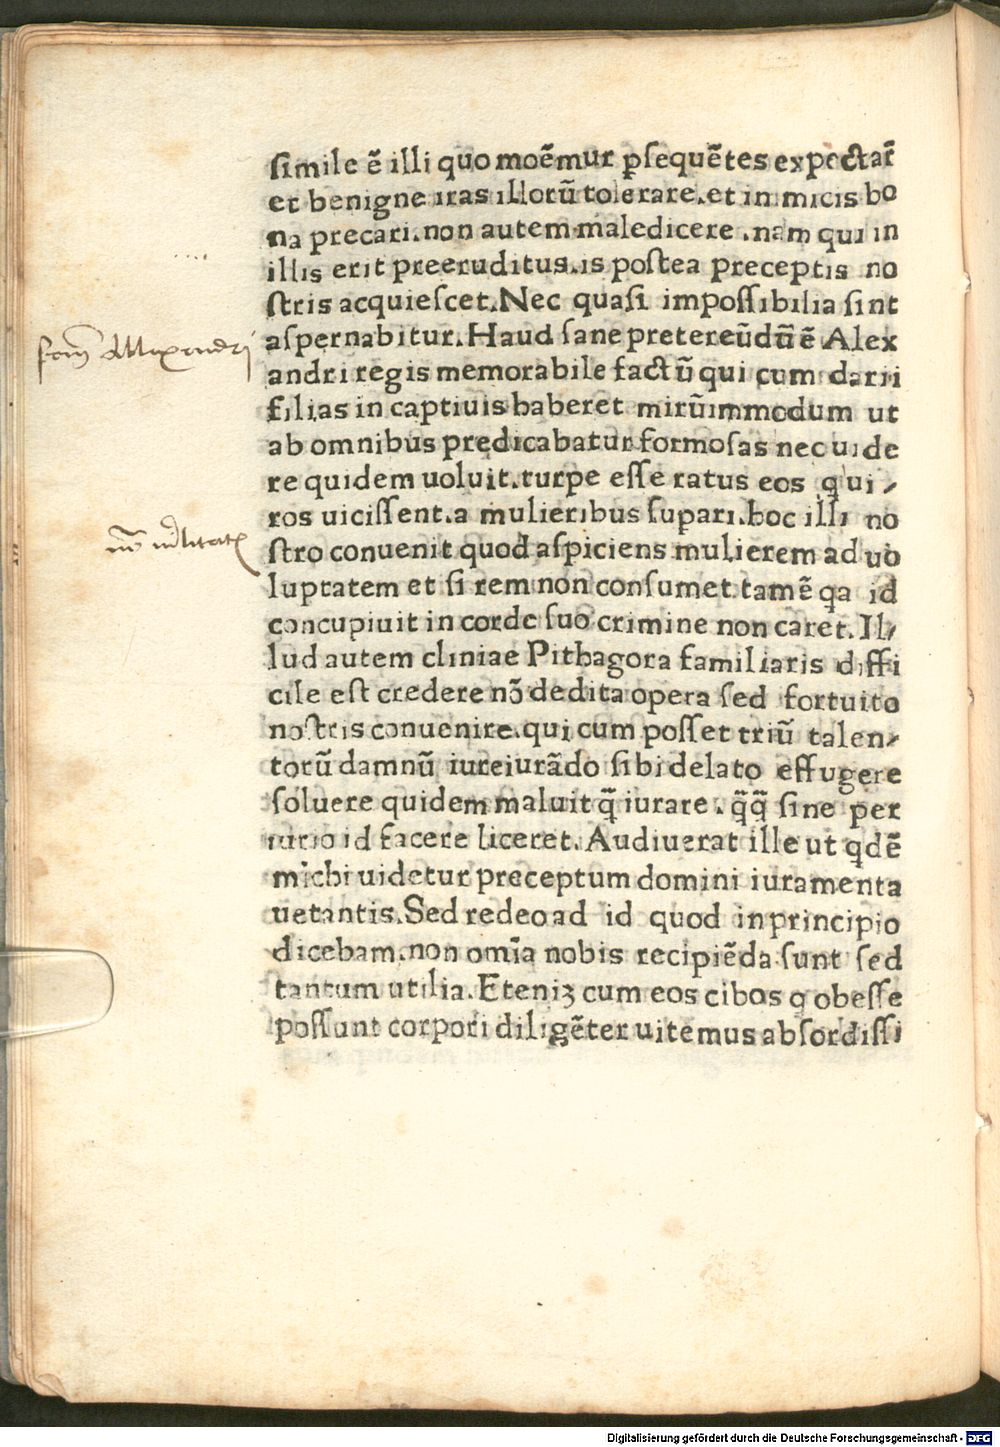 simile ē illi quo moēmur ꝑsequētes expectaȓ
et benigne iras illorū tolerare.et inimicis bo
na precari.non autem maledicere .nam qui in
illis erit preeruditus.is postea preceptis no
stris acquiescet.Nec quasi impossibilia sint
aspernabitur.Haud sane pretereūdū ē Alex
andri regis memorabile factū qui cum darii
filias in captiuis haberet mirūimmodum ut
ab omnibus predicabatur formosas nec uide
re quidem uoluit.turpe esse ratus eos qui ui⸗
ros uicissent.a mulieribus supari.hoc illi no
stro conuenit quod aspiciens mulierem ad uo
luptatem et si rem non consumet tamē qa id
concupiuit in corde suo crimine non caret.Il⸗
lud autem cliniae Pithagora familiaris diffi
cile est credere nō dedita opera sed fortuito
nostris conuenire.qui cum posset triū talen⸗
torū damnū iureiurādo sibi delato effugere
soluere quidem maluit q̄ iurare .q̄q̄ sine per
iurio id facere liceret.Audiuerat ille ut qdē
michi uidetur preceptum domini iuramenta
uetantis.Sed redeo ad id quod in principio
dicebam.non omīa nobis recipiēda sunt sed
tantum utilia.Eteniꝫ cum eos cibos q obesse
possunt corpori diligēter uitemus absordissi
Allexandri
Digitalisierung gefördert durch die Deutsche Forschungsgemeinschaft - DFG